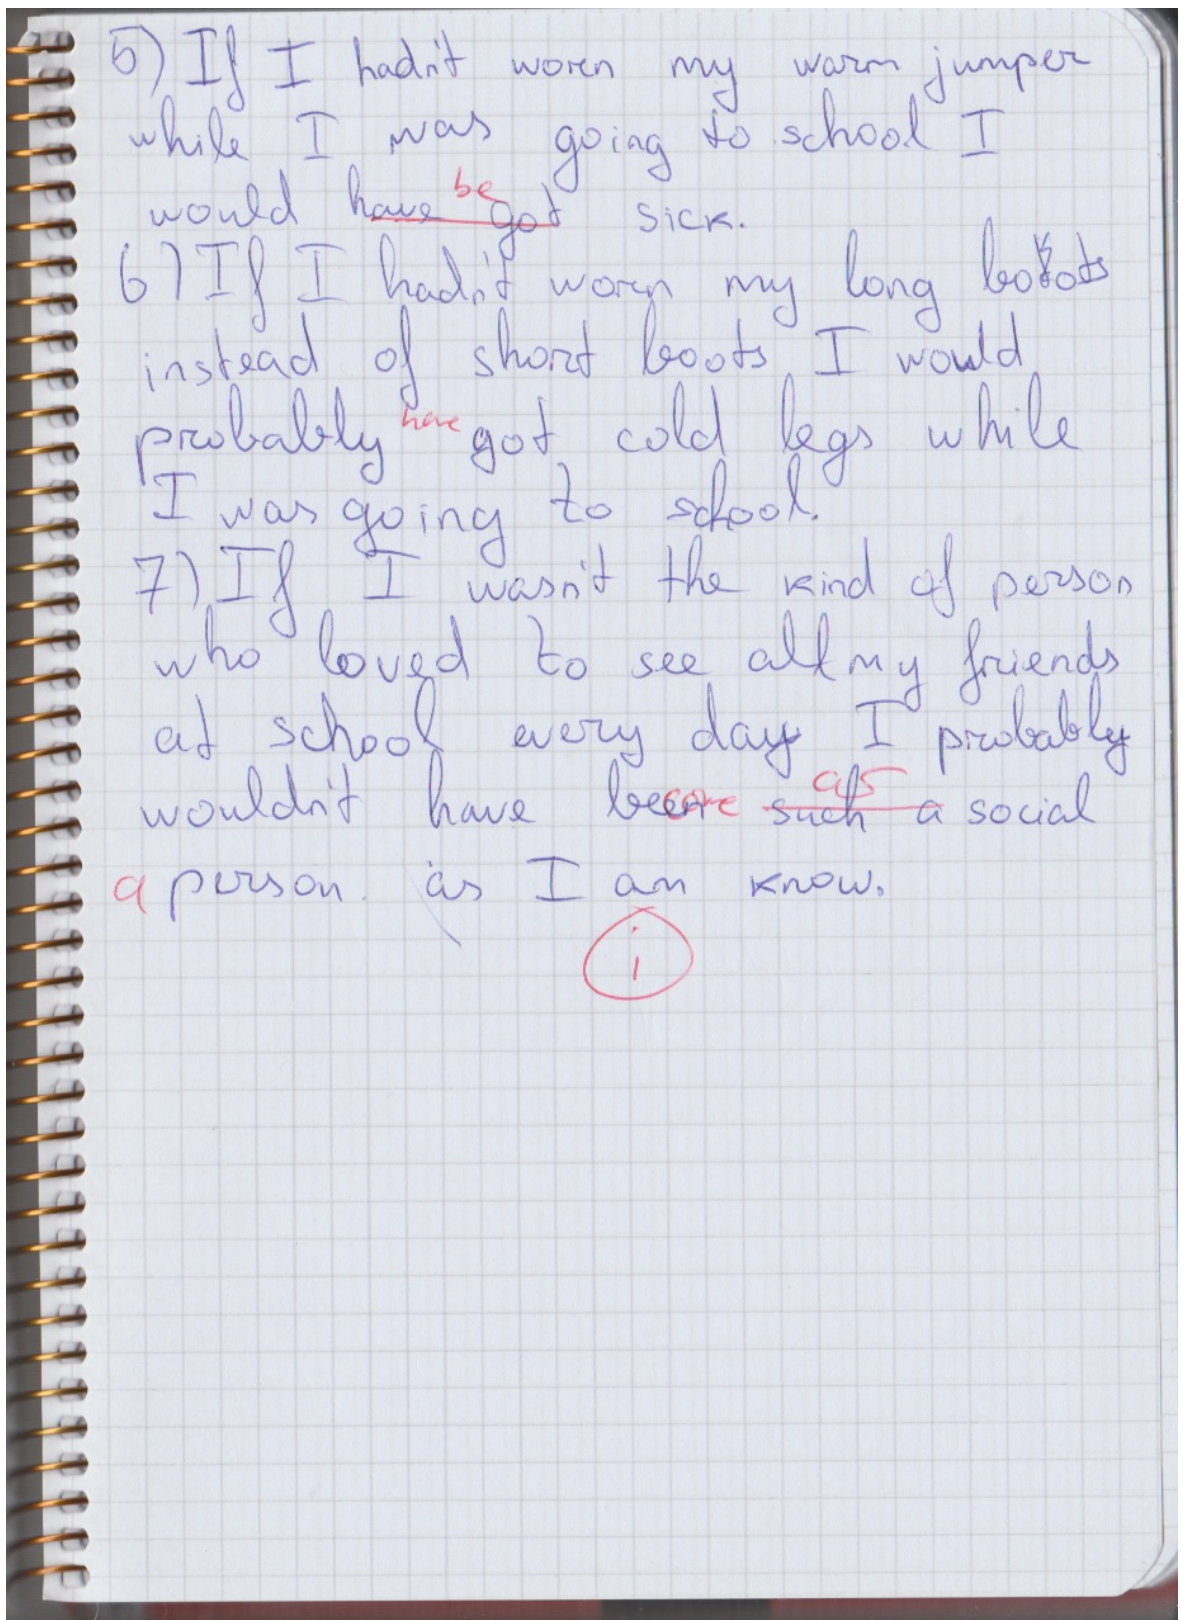 5) If I hadn't worn my warm jumper
while I was going to school I
be
would have got sick.
6) If I hadn't worn my long boots
instead of short boots I would
probably have got cold legs while
I was going to school.
7) If I wasn't the kind of person
who loved to see all my friends
at school every day I probably
as
wouldn't have become such a social
a person. as I am know.
i